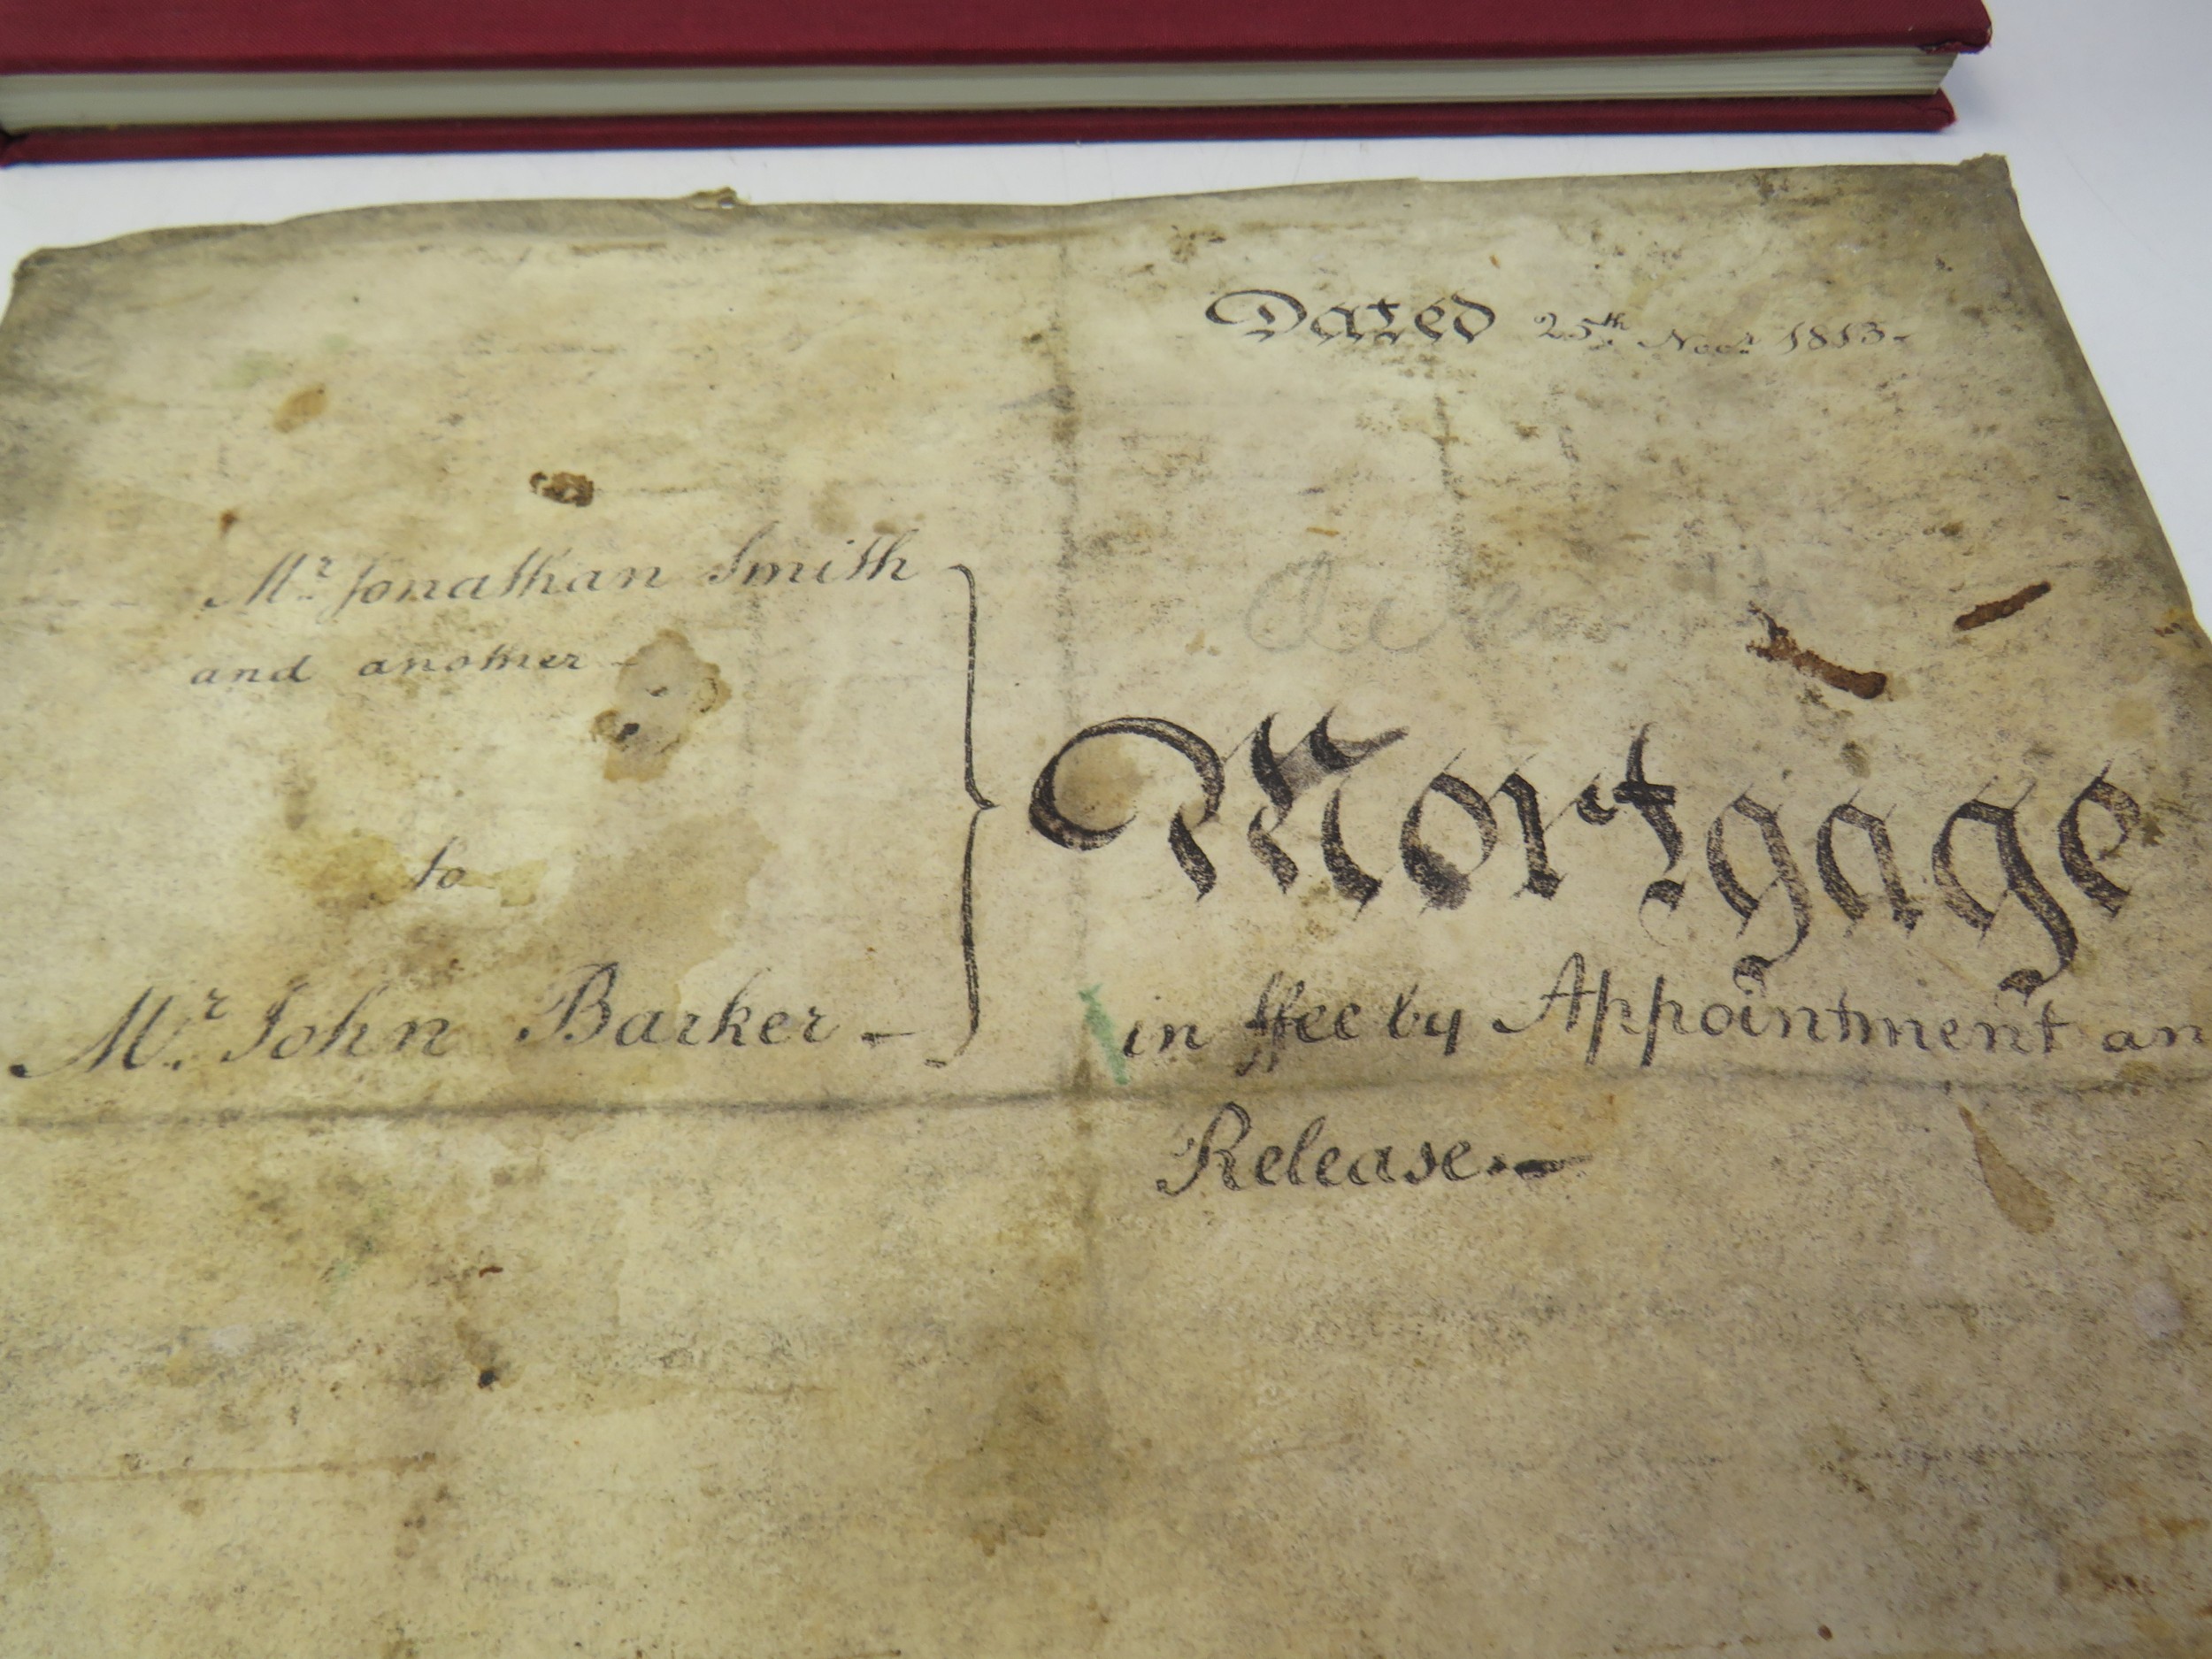 Dated 25th Novr 1813-
Mr Jonathan Smith
and another -
to
Mr John Barker -
Mortgage
in ffee by Appointment an
Release.-